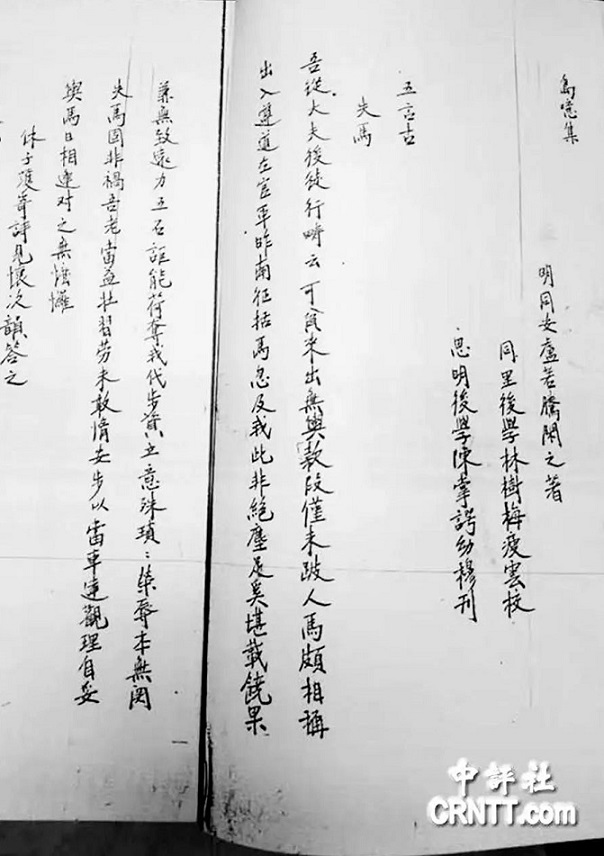 島噫集
明同安盧若騰閑之著
同里後學林樹梅瘦雲校
思明後學陳掌諤幼穆刊
五言古
失馬
吾從大夫後徒行疇云可來出無輿款段僅未跛人馬頗相稱
出入遵道左官軍昨南征括馬忽及我此非絕塵足奚堪載饒果
兼無致遠力五石詎能荷奪我代步資立意殊瑣:榮辱本無関
失馬固非禍吾老當益壯習勞未敢惰安步以當車達觀理自妥
馬日相連对之無
休子獲寄詩見懷次韻答之
中評社
CRNTT.com